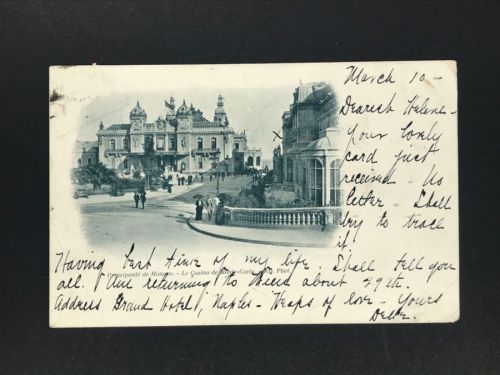 March 10 -
Dearest Helene -
Your lovely
card just
received - No
letter - Shall
try to trace
it.
Having best time of my life. Shall tell you
Principauté de Monaco. - Le Casino de Monte-Carlo Phot.
all. Am returning to about 29th.
Address Grand Hotel, Naples - Heaps of love - Yours